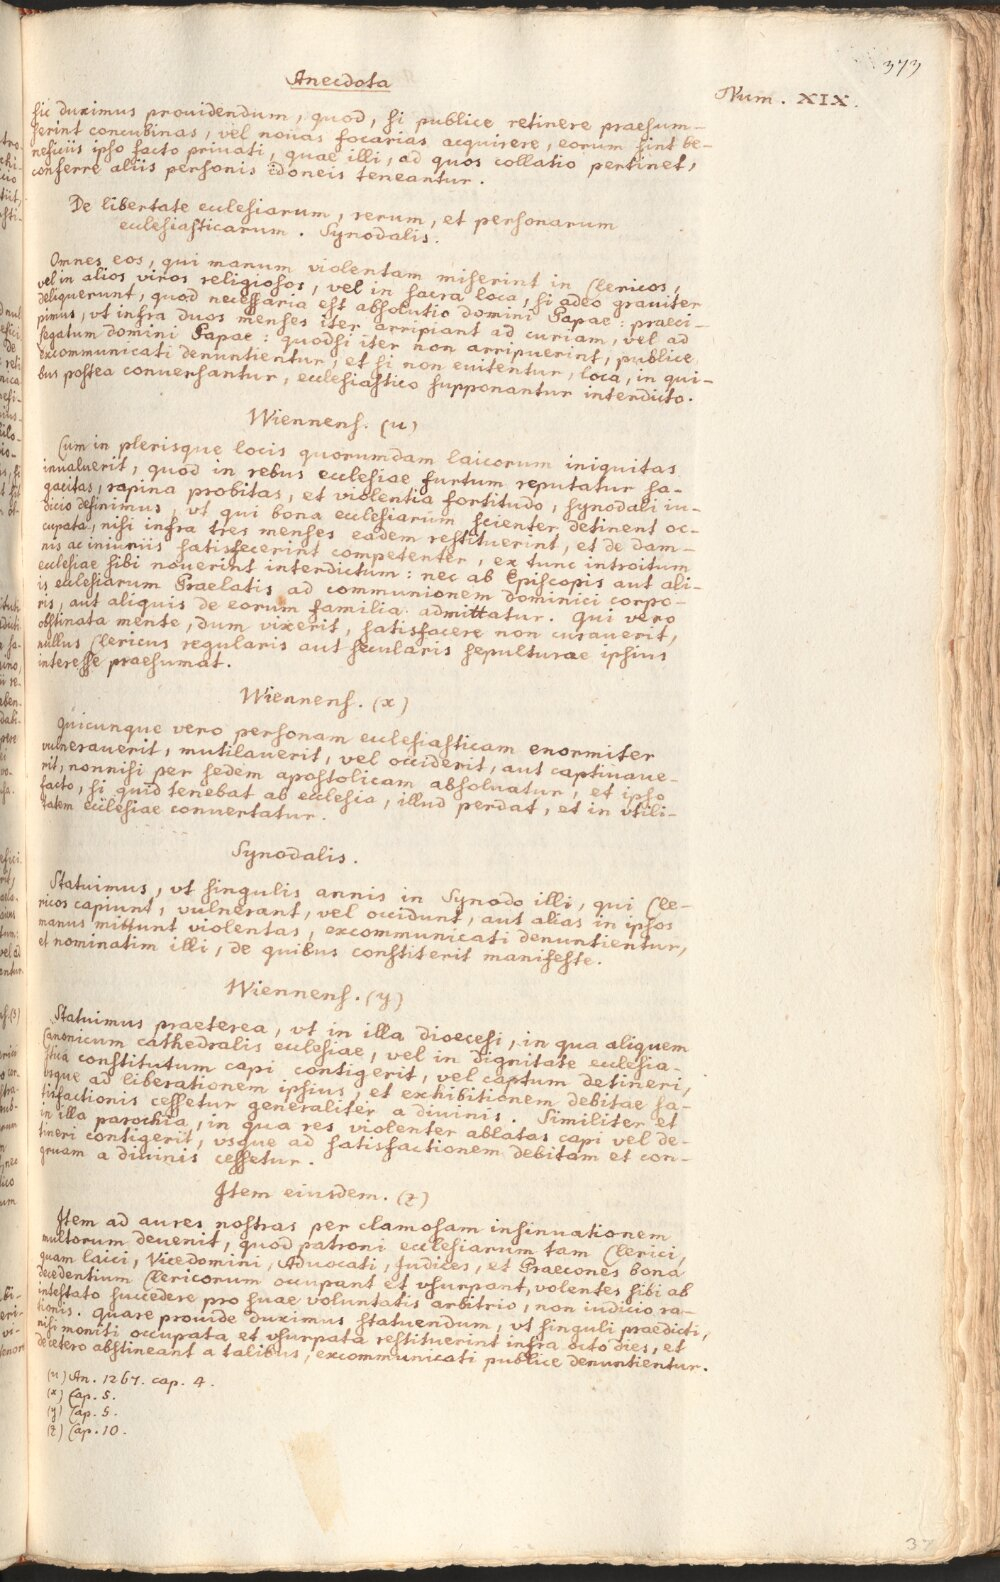 373
Anecdota
Num. XIX.
sic duximus prouidendum, quod, si publice retinere praesum-
serint concubinas, vel nouas focarias acquirere, eorum sint be-
neficiis ipso facto priuati, quae illi, ad quos collatio pertinet,
conferre aliis personis idoneis teneantur.
De libertate ecclesiarum, rerum, et personarum
ecclesiasticarum. Synodalis.
Omnes eos, qui manum violentam miserint in Clericos,
vel in alios viros religiosos, vel in sacra loca, si adeo grauiter
deliquerunt, quod necessaria est absolutio domini Papae: praeci-
pimus, vt infra duos menses iter arripiant ad curiam, vel ad
legatum domini Papae: quodsi iter non arripuerint, publice
excommunicati denuntientur, et si non euitentur, loca, in qui-
bus postea conuersantur, ecclesiastico supponantur interdicto.
Wiennens. (u)
Cum in plerisque locis quorumdam laicorum iniquitas
inualuerit, quod in rebus ecclesiae furtum reputatur sa-
gacitas, rapina probitas, et violentia fortitudo, synodali iu-
dicio definimus, vt qui bona ecclesiarum scienter detinent oc-
cupata, nisi infra tres menses eadem restituerint, et de dam-
nis ac iniuriis satisfecerint competenter, ex tunc introitum
ecclesiae sibi nouerint interdictum: nec ab Episcopis aut ali-
is ecclesiarum Praelatis ad communionem dominici corpo-
ris, aut aliquis de eorum familia admittatur. Qui vero
obstinata mente, dum vixerit, satisfacere non curauerit,
nullus Clericus regularis aut secularis sepulturae ipsius
interesse praesumat.
Wiennens. (x)
Quicunque vero personam ecclesiasticam enormiter
vulnerauerit, mutilauerit, vel occiderit, aut captiuaue-
rit, nonnisi per sedem apostolicam absoluatur, et ipso
facto, si quid tenebat ab ecclesia, illud perdat, et in vtili-
tatem ecclesiae conuertatur.
Synodalis.
Statuimus, vt singulis annis in Synodo illi, qui Cle-
ricos capiunt, vulnerant, vel occidunt, aut alias in ipsos
manus mittunt violentas, excommunicati denuntientur,
et nominatim illi, de quibus constiterit manifeste.
Wiennens. (y)
Statuimus praeterea, vt in illa dioecesi, in qua aliquem
Canonicum cathedralis ecclesiae, vel in dignitate ecclesia-
stica constitutum capi contigerit, vel captum detineri,
vsque ad liberationem ipsius, et exhibitionem debitae sa-
tisfactionis cessetur generaliter a diuinis. Similiter et
in illa parochia, in qua res violenter ablatas capi vel de-
tineri contigerit, vsque ad satisfactionem debitam et con-
gruam a diuinis cessetur.
Item eiusdem. (z)
Item ad aures nostras per clamosam insinuationem
multorum deuenit, quod patroni ecclesiarum tam Clerici,
quam laici, Vicedomini, Aduocati, Judices, et Praecones bona
decedentium Clericorum occupant et vsurpant, volentes sibi ab
intestato succedere pro suae voluntatis arbitrio, non iudicio ra-
tionis. Quare prouide duximus statuendum, vt singuli praedicti,
nisi moniti occupata et vsurpata restituerint infra octo dies, et
de cetero abstineant a talibus, excommunicati publice denuntientur.
(u) An. 1267. cap. 4.
(x) Cap. 5.
(y) Cap. 5.
(z) Cap. 10.
37